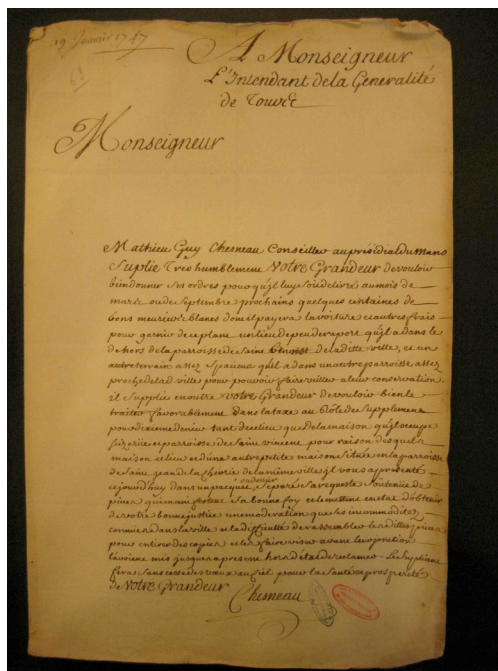 19 Janvier 1747
A Monseigneur
L'Intendant de la Generalité
de Tours
Monseigneur
Mathieu Guy Chesneau Conseiller au présidial du Mans
Suplie Tres humblement Votre Grandeur de vouloir
bien donner ses ordres pour qu'il luy soit delivré au mois de
mars ou de Septembre prochains quelques centaines de
bons meuriers blancs dont il payera la voiture et autres frais
pour garnir de ce plant un lieu de peu de raport qu'il a dans le
dehors de la parroisse de Saint benoist de laditte ville, et un
autre terrain assez spatieux qu'il a dans un autre parroisse assez
proche de lad. ville pour pouvoir faire veiller a leur conservation.
il supplie en outre Votre Grandeur de vouloir bien le
traiter favorablement dans la taxe au Rôle de Supplement
pour dixieme denier tant de celieu que de la maison qu'il occupe
parroisse de Saint vincent pour raison desquels
maison et lieu et d'une autre petite maison située en la parroisse
de Saint jean de la mesme ville il vous a presenté
aujourd'huy dans un paquet separé sa requeste soutenüe de
pieces qui sa bonne foy et le mettent en etat d'obtenir
de votre bonne justice une moderation que les incommodités
dans la ville et la dificulté de rassembler lesdittes pieces
pour en tirer des copies et les faire viser avant leur
l'avoient mis jusqu'a present hors d'état de reclamer. Le Supliant
fera sans cesse des vœux au Ciel pour la Santé et prosperité
de Votre Grandeur
Chesneau